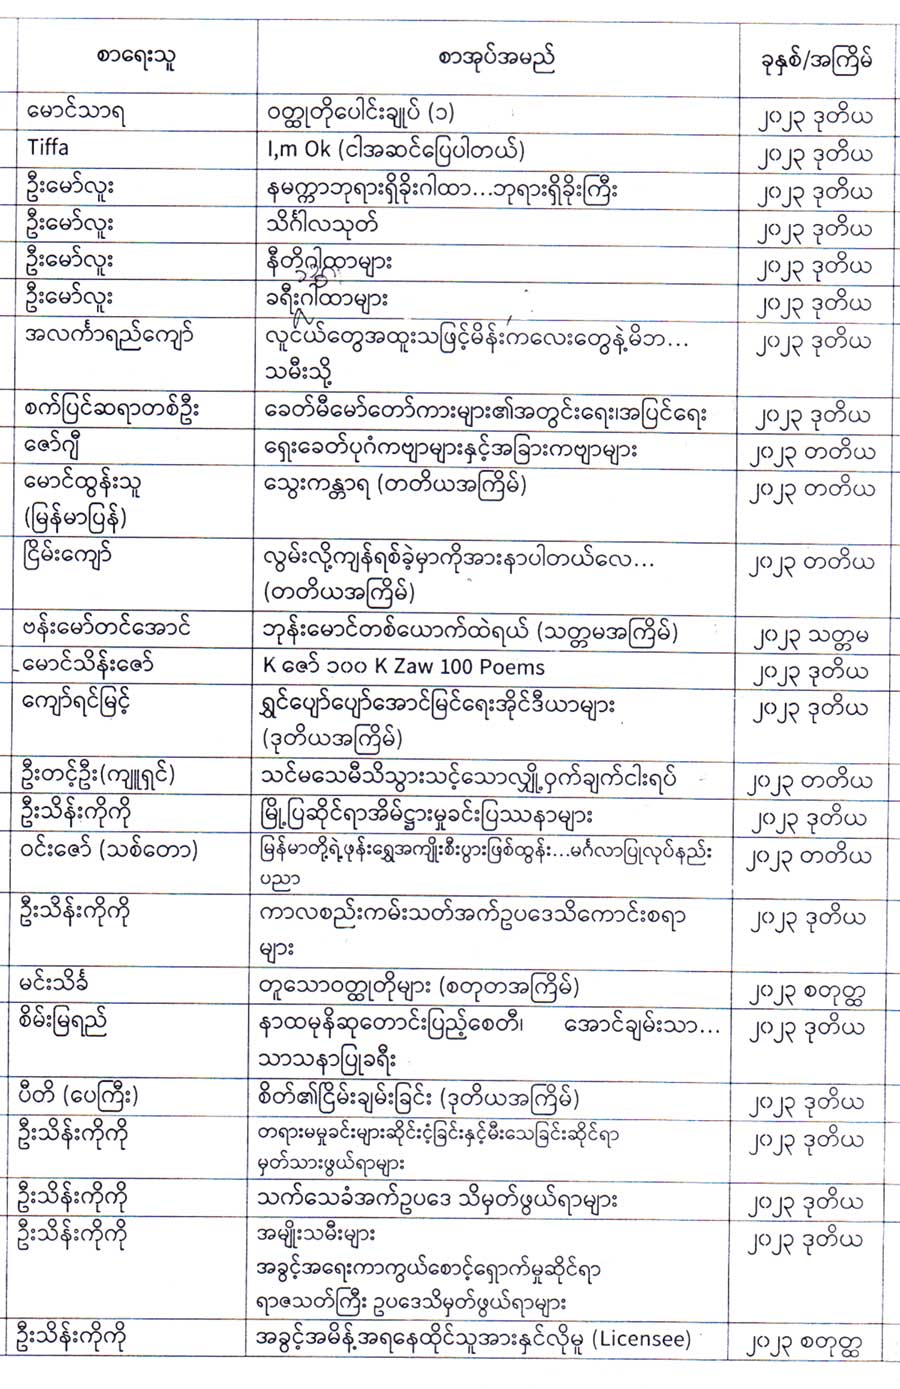 စာရေးသူ စာအုပ်အမည် ခုနှစ်/အကြိမ်
မောင်သာရ ဝတ္ထုတိုပေါင်းချုပ် (၁) ၂၀၂၃ ဒုတိယ
Tiffa I,m Ok (ငါအဆင်ပြေပါတယ်) ၂၀၂၃ ဒုတိယ
ဦးမော်လူး နမက္ကာဘုရားရှိခိုးဂါထာ...ဘုရားရှိခိုးကြီး ၂၀၂၃ ဒုတိယ
ဦးမော်လူး သိင်္ဂါလသုတ် ၂၀၂၃ ဒုတိယ
ဦးမော်လူး နီတိဂါထာများ ၂၀၂၃ ဒုတိယ
ဦးမော်လူး ခရီးဂါထာများ ၂၀၂၃ ဒုတိယ
အလင်္ကာရည်ကျော် လူငယ်တွေအထူးသဖြင့်မိန်းကလေးတွေနဲ့မိဘ... ၂၀၂၃ ဒုတိယ
သမီးသို့
စက်ပြင်ဆရာတစ်ဦး ခေတ်မီမော်တော်ကားများ၏အတွင်းရေး၊အပြင်ရေး ၂၀၂၃ ဒုတိယ
ဇော်ဂျီ ရှေးခေတ်ပုဂံကဗျာများနှင့်အခြားကဗျာများ ၂၀၂၃ တတိယ
မောင်ထွန်းသူ သွေးကန္တာရ (တတိယအကြိမ်) ၂၀၂၃ တတိယ
(မြန်မာပြန်)
ငြိမ်းကျော် လွမ်းလို့ကျန်ရစ်ခဲ့မှာကိုအားနာပါတယ်လေ... ၂၀၂၃ တတိယ
(တတိယအကြိမ်)
ဗန်းမော်တင်အောင် ဘုန်းမောင်တစ်ယောက်ထဲရယ် (သတ္တမအကြိမ်) ၂၀၂၃ သတ္တမ
မောင်သိန်းဇော် K ဇော် ၁၀၀ K Zaw 100 Poems ၂၀၂၃ ဒုတိယ
ကျော်ရင်မြင့် ရွှင်ပျော်ပျော်အောင်မြင်ရေးအိုင်ဒီယာများ ၂၀၂၃ ဒုတိယ
(ဒုတိယအကြိမ်)
ဦးတင့်ဦး(ကျူရှင်) သင်မသေမီသိသွားသင့်သောလျှို့ဝှက်ချက်ငါးရပ် ၂၀၂၃ တတိယ
ဦးသိန်းကိုကို မြို့ပြဆိုင်ရာအိမ်ဌားမှုခင်းပြဿနာများ ၂၀၂၃ ဒုတိယ
ဝင်းဇော် (သစ်တော) မြန်မာတို့ရဲ့ဖုန်းရွှေအကျိုးစီးပွားဖြစ်ထွန်း...မင်္ဂလာပြုလုပ်နည်း ၂၀၂၃ တတိယ
ပညာ
ဦးသိန်းကိုကို ကာလစည်းကမ်းသတ်အက်ဥပဒေသိကောင်းစရာ ၂၀၂၃ ဒုတိယ
များ
မင်းသိင်္ခ တူသောဝတ္ထုတိုများ (စတုတအကြိမ်) ၂၀၂၃ စတုတ္ထ
စိမ်းမြရည် နာထမုနိဆုတောင်းပြည့်စေတီ၊ အောင်ချမ်းသာ... ၂၀၂၃ ဒုတိယ
သာသနာပြုခရီး
ပီတိ (ပေကြီး) စိတ်၏ငြိမ်းချမ်းခြင်း (ဒုတိယအကြိမ်) ၂၀၂၃ ဒုတိယ
ဦးသိန်းကိုကို တရားမမှုခင်းများဆိုင်းငံ့ခြင်းနှင့်မီးသေခြင်းဆိုင်ရာ ၂၀၂၃ ဒုတိယ
မှတ်သားဖွယ်ရာများ
ဦးသိန်းကိုကို သက်သေခံအက်ဥပဒေ သိမှတ်ဖွယ်ရာများ ၂၀၂၃ ဒုတိယ
ဦးသိန်းကိုကို အမျိုးသမီးများ ၂၀၂၃ ဒုတိယ
အခွင့်အရေးကာကွယ်စောင့်ရှောက်မှုဆိုင်ရာ
ရာဇသတ်ကြီး ဥပဒေသိမှတ်ဖွယ်ရာများ
ဦးသိန်းကိုကို အခွင့်အမိန့်အရနေထိုင်သူအားနှင်လိုမှု (Licensee) ၂၀၂၃ စတုတ္ထ